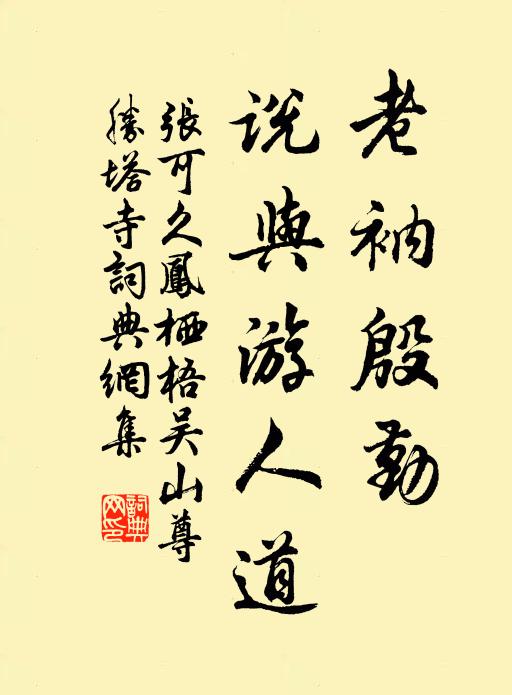 老衲殷勤
說與游人道
張可久鳳栖梧吴山尊
勝塔寺詞典網集
詞典网印